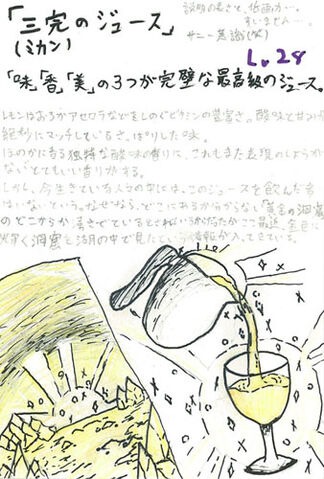 「三完のジュース」
(ミカン)
説明の長さと、低画力…。
すいません…。
サニー意識(笑)
Lv.28
「味」「香」「美」の3つが完璧な最高級のジュース。
レモンはおろかアセロラなどをしのぐビタミンの豊富さ。酸味と甘みが
絶妙にマッチしているさっぱりした味。
ほのかに香る独特な酸味の香りは、これもまた表現のしようが
ないとてもいい香りがする。
しかし、今生きている人々の中には、このジュースを飲んだ者
はいないという。なぜなら、どこにあるか分からない「黄金の洞窟」
のどこからか湧きでているとされているからだ。だがここ最近、金色に
輝く洞窟を湖の中で見たという情報が入ってきている。